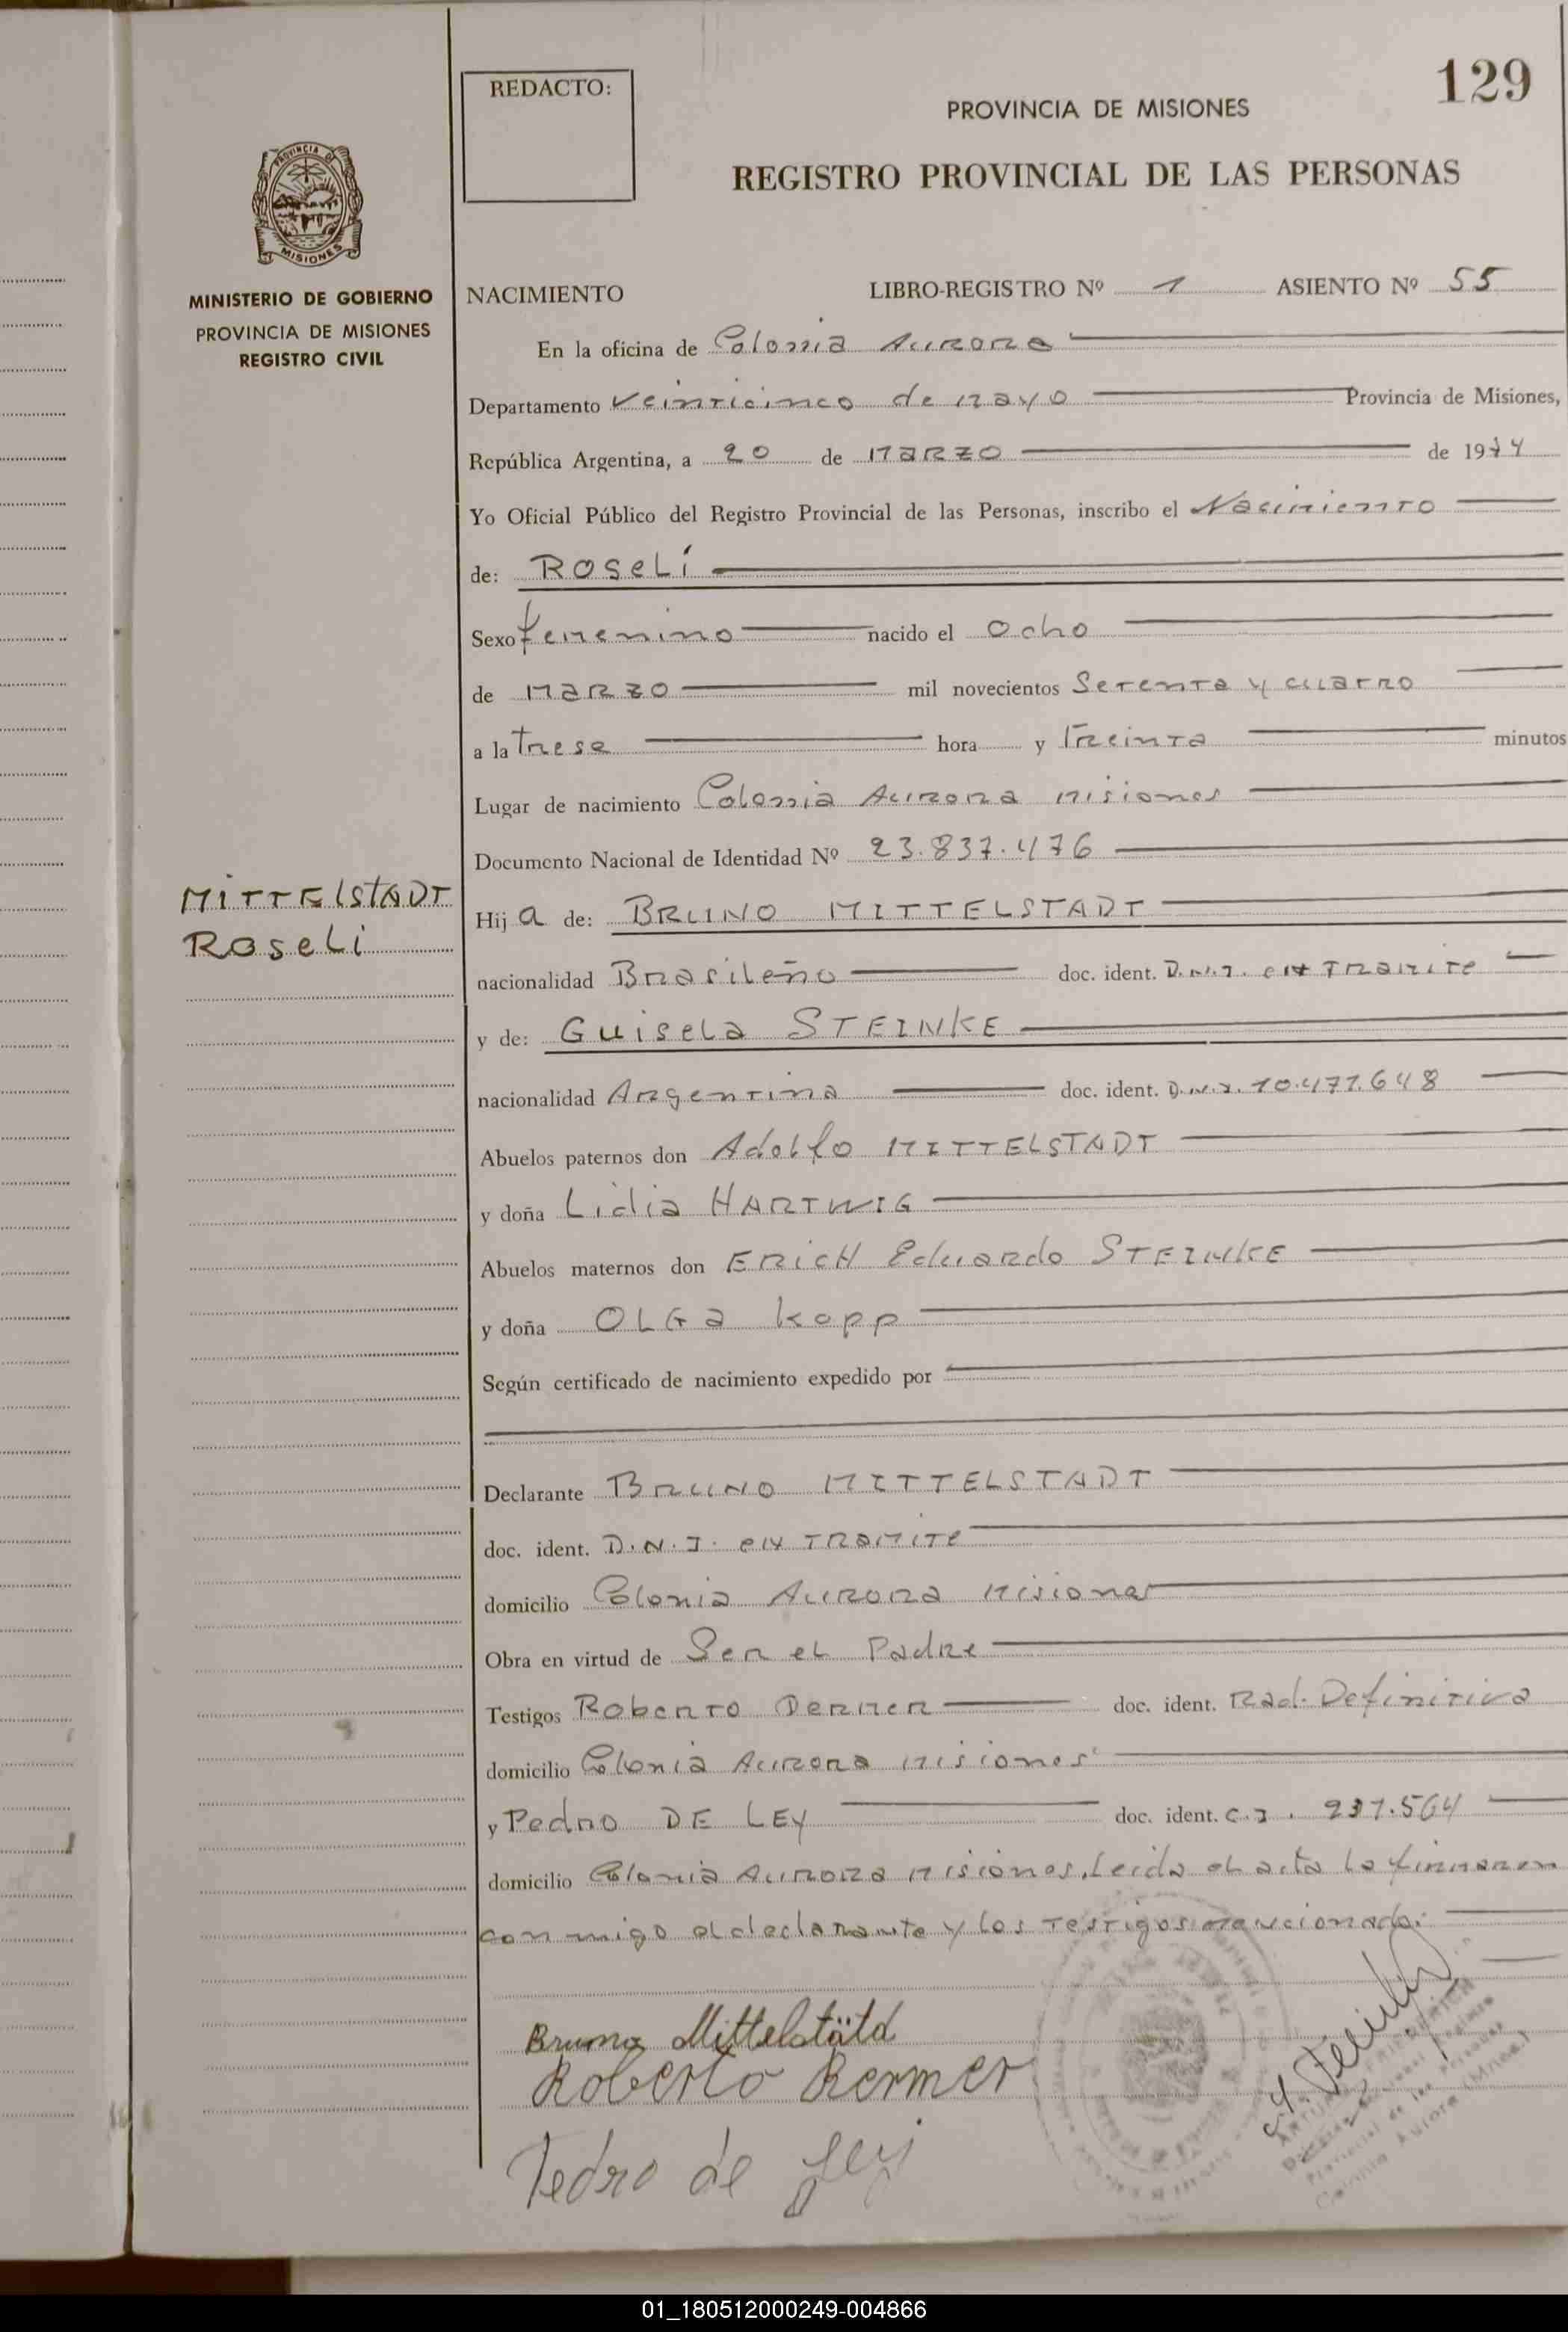 129
REDACTO:
PROVINCIA DE MISIONES
REGISTRO PROVINCIAL DE LAS PERSONAS
PROVINCIA DE
MISIONES
MINISTERIO DE GOBIERNO
PROVINCIA DE MISIONES
REGISTRO CIVIL
NACIMIENTO LIBRO-REGISTRO Nº 1 ASIENTO Nº 55
En la oficina de Colonia Aurora
Departamento Veinticinco de Mayo Provincia de Misiones,
República Argentina, a 20 de Marzo de 1974
Yo Oficial Público del Registro Provincial de las Personas, inscribo el Nacimiento
de: Roselí
Sexo femenino nacido el Ocho
de Marzo mil novecientos Setenta y cuatro
a la trese hora y Treinta minutos
Lugar de nacimiento Colonia Aurora Misiones
Documento Nacional de Identidad Nº 23.837.476
MITTELSTADT
Roseli
Hij a de: BRUNO MITTELSTADT
nacionalidad Brasileño doc. ident. D.N.I. en Tramite
y de: Guisela STEINKE
nacionalidad Argentina doc. ident. D.N.I. 10.477.648
Abuelos paternos don Adolfo MITTELSTADT
y doña Lidia HARTWIG
Abuelos maternos don ERICH Eduardo STEINKE
y doña OLGa kopp
Según certificado de nacimiento expedido por
Declarante BRUNO MITTELSTADT
doc. ident. D.N.I. en Tramite
domicilio Colonia Aurora Misiones
Obra en virtud de Ser el Padre
Testigos Roberto Dermer doc. ident. Rad. Definitiva
domicilio Colonia Aurora Misiones
y Pedro DE LEY doc. ident. C.I. 237.564
domicilio Colonia Aurora Misiones. Leida el acta la firmaren
con migo el declarante y los Testigos mencionado.
Bruno Mittelstätd
Roberto Rermer
Pedro de Ley
01_180512000249-004866